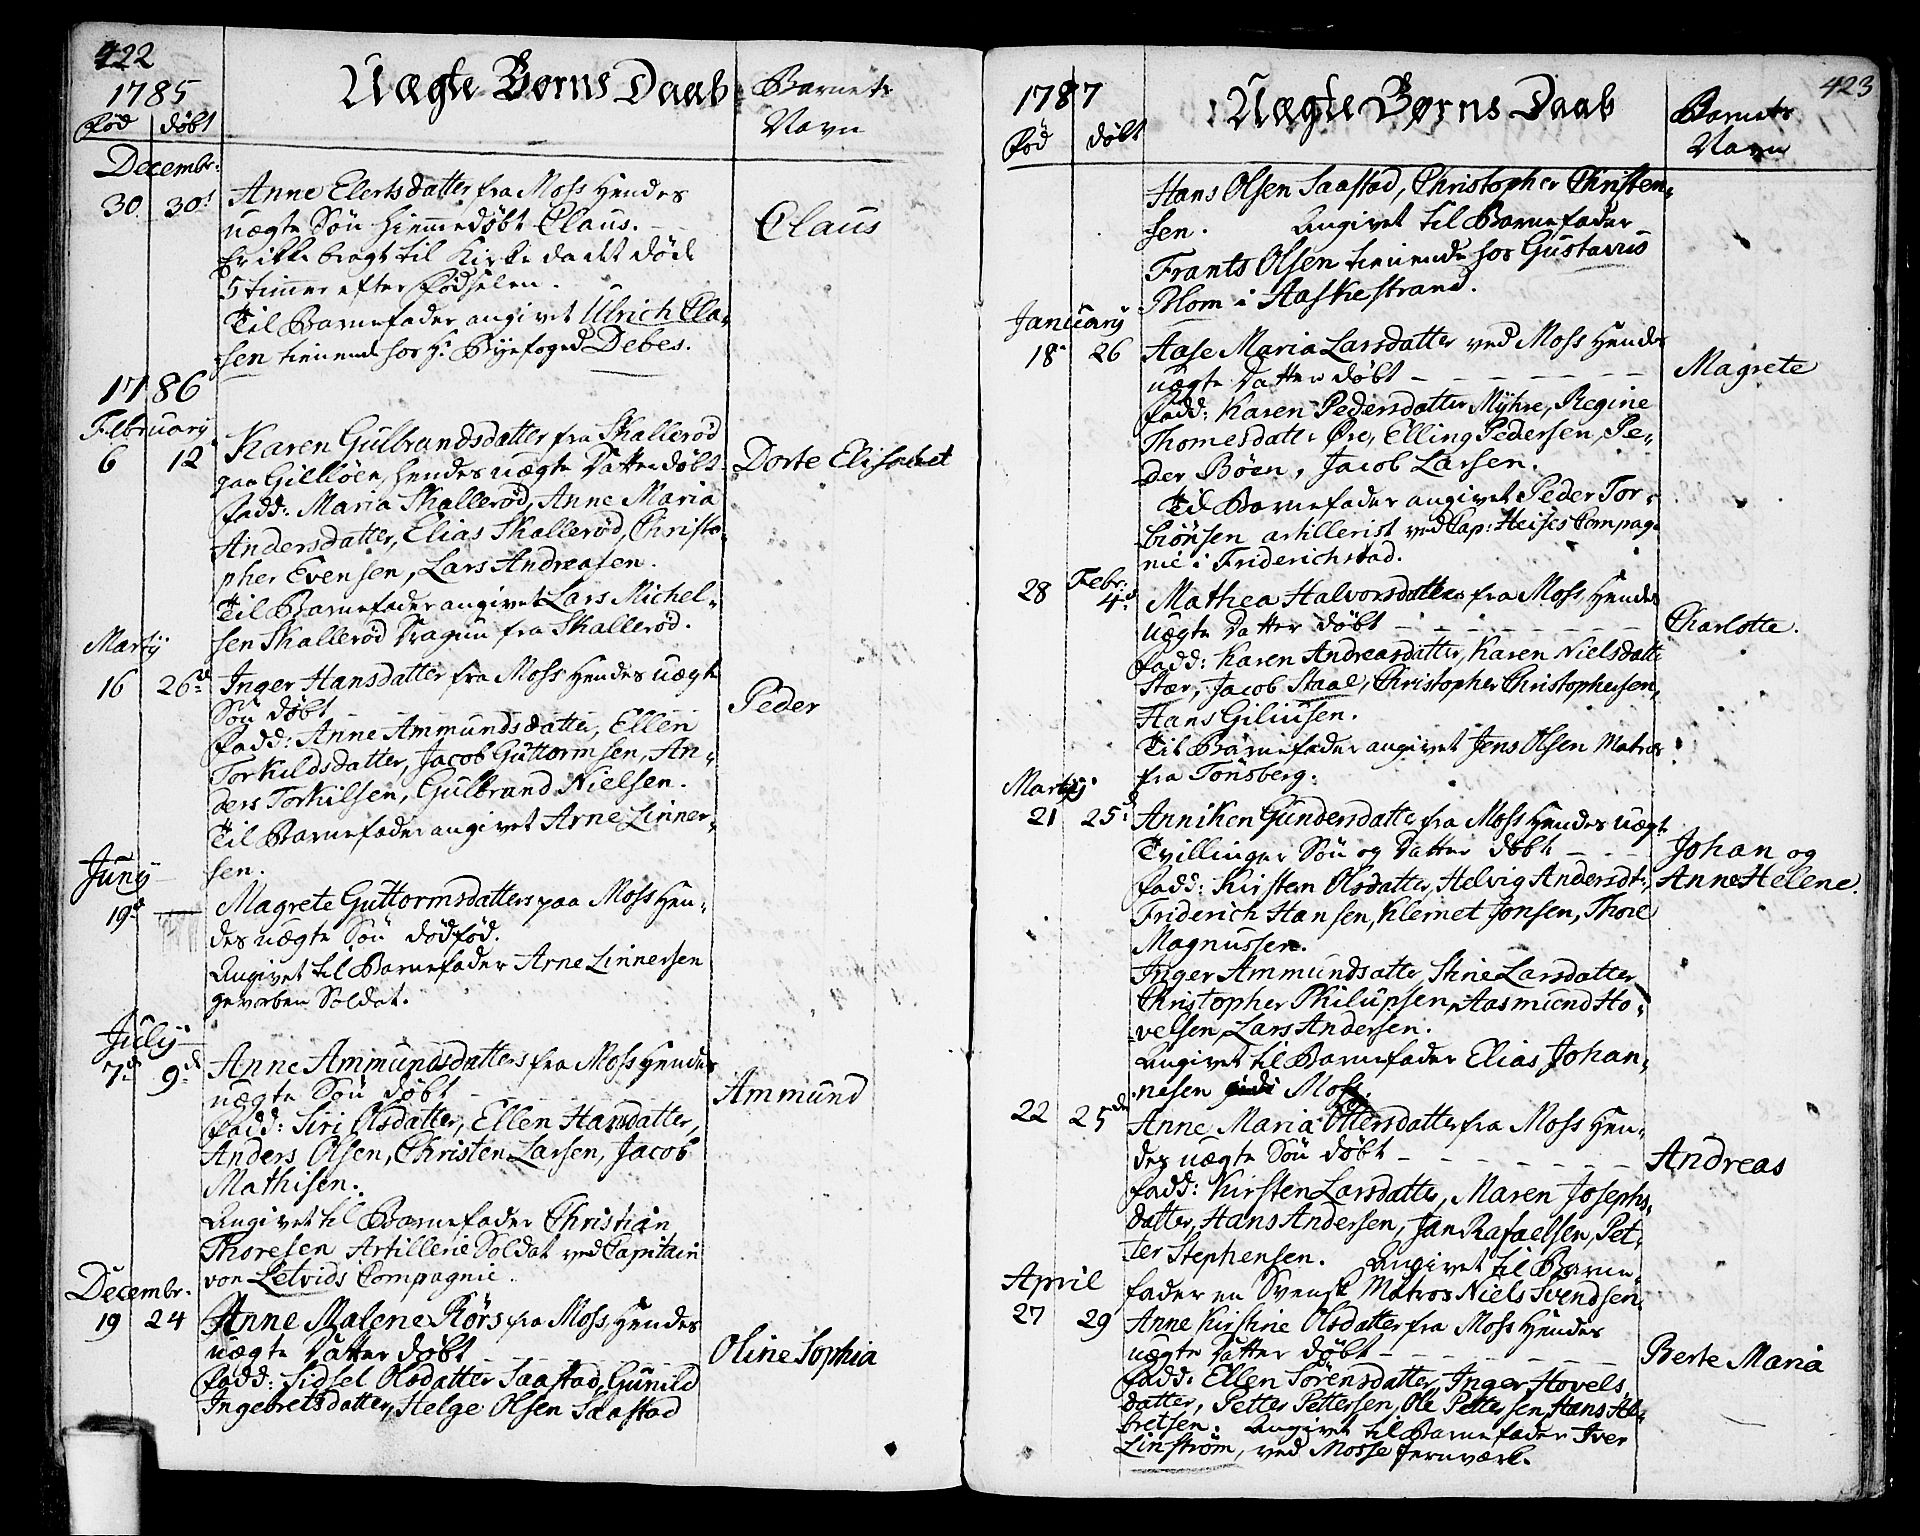 422
1785
Uægte Börns Daab
Barnets
Navn
Fød døbt
Decembr:
30 30t Anne Elertsdatter fra Moss hendes
uægte Sön hiemmedöbt Claus. Claus
Er ikke bragt til Kirke da det døde
5 timer efter Fødselen.
Til Barnefader angivet Ulrich Cla-
sen tienende hos Hr Byefoged Debes.
1786
February
6 12 Karen Gulbrandsdatter fra Skallerød
paa Gillöen, hendes uægte Datter døbt Dorte Elisabet
Fadd: Maria Skallerød, Anne Maria
Andersdatter, Elias Skallerød, Christo-
pher Evensen, Lars Andreasen.
Til Barnefader angivet Lars Michel-
sen Skallerød Dragun fra Skallerød.
Martij
16 26d Inger Hansdatter fra Moss hendes uægte
Sön døbt Peder
Fadd: Anne Ammundsdatter, Ellen
Torkildsdatter, Jacob Guttormsen, An-
ders Torkilsen, Gulbrand Nielsen.
Til Barnefader angivet Arne Linner-
sen.
Junij
19d Magrete Guttormsdatters paa Moss hen-
des uægte Sön dødfød.
Angivet til Barnefader Arne Linnersen
geworben Soldat.
Julij
7d 9d Anne Ammundsdatters fra Moss hendes
uægte Sön døbt Ammund
Fadd: Siri Olsdatter, Ellen Hansdatter,
Anders Olsen, Christen Larsen, Jacob
Mathisen.
Angivet til Barnefader Christian
Thoresen Artillerie Soldat ved Capitain
von Letvids Compagnie.
Decembr.
19 24 Anne Malene Rörs fra Moss hendes
uægte Datter døbt Oline Sophia
Fadd: Sidsel Olsdatter Saastad, Gunild
Ingebretsdatter, Helge Olsen Saastad
423
1787
Uægte Børns Daab
Barnets
Navn
Fød døbt
Hans Olsen Saastad, Christopher Christen-
sen. Angivet til Barnefader
Frants Olsen tienende hos Gustavus
Blom i Aaskestrand.
Januarij
18d 26 Aase Maria Larsdatter ved Moss hendes
uægte Datter døbt Magrete
Fadd: Karen Pedersdatter Myhre, Regine
Thomesdatter Øre, Elling Pedersen, Pe-
der Böen, Jacob Larsen.
Til Barnefader angivet Peder Tor-
biönsen artillerist ved Cap: Heises Compag-
nie i Friderichstad.
28 Febr: 4d Mathea Halvorsdatter fra Moss, hendes
uægte Datter døbt Charlotte.
Fadd: Karen Andreasdatter, Karen Nielsdatter
Stær, Jacob Staal, Christopher Christophersen,
Hans Giliusen.
Til Barnefader angivet Jens Olsen Matros
fra Tönsberg.
Martij
21 25d Anniken Gundersdatter fra Moss hendes uægte
Tvillinger Sön og Datter døbt Johan og
Fadd: Kirsten Olsdatter, Helvig Andersdtr, Anne Helene.
Friderich Hansen, Klemet Jonsen, Thore
Magnussen.
Inger Ammundsatter, Stine Larsdatter
Christopher Philupsen, Aasmund Ho-
velsen, Lars Andersen.
Angivet til Barnefader Elias Johan-
nesen Moss.
22 25de Anne Maria Ottersdatter fra Moss hen-
des uægte Sön døbt Andreas
Fadd: Kirsten Larsdatter, Maren Josephs-
datter, Hans Andersen, Jan Rafaelsen, Pet-
ter Stephensen. Angivet til Barne-
fader en Svensk Matros Niels Svendsen.
April
27 29 Anne Kirstine Olsdatter fra Moss hendes
uægte Datter døbt Berte Maria
Fadd: Ellen Sörensdatter, Inger Hovels
datter, Petter Pettersen, Ole Pettersen, Hans Al-
bretsen. Angivet til Barnefader Iver
Linström, ved Mosse Jernværk.